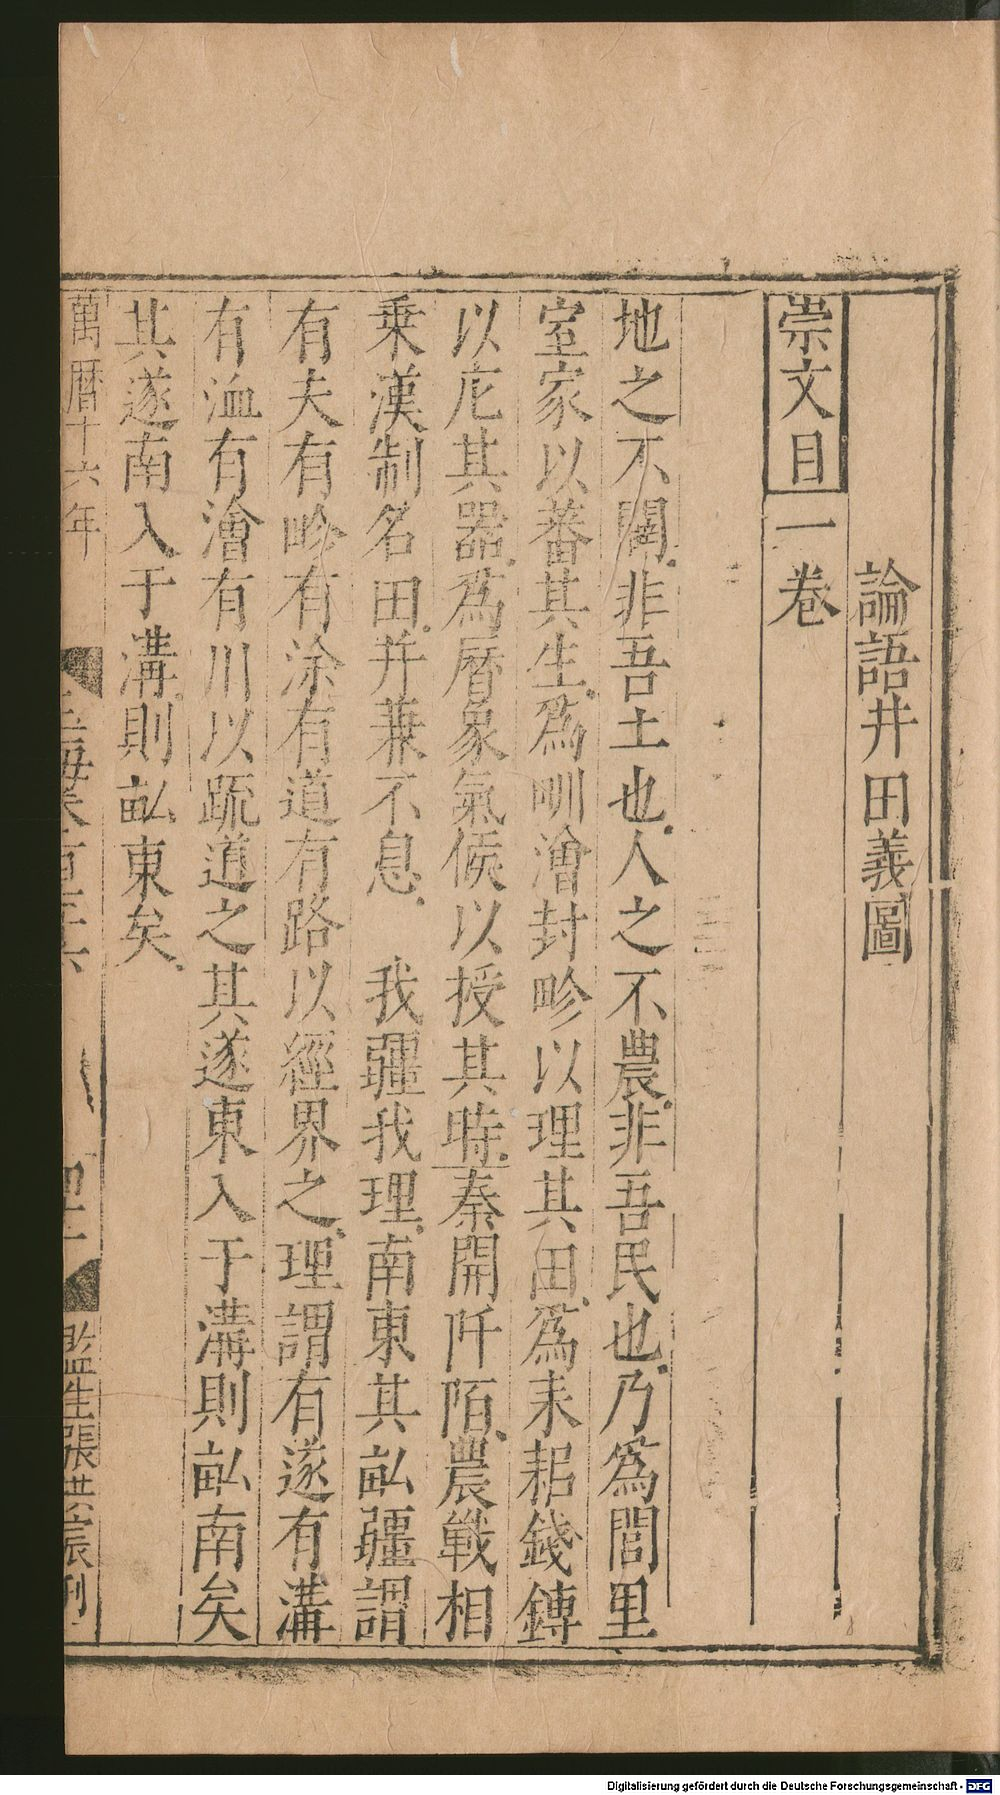 論語井田義圖
崇文目一卷
地之不闢非吾土也人之不農非吾民也乃爲閭里
室家以蕃其生爲甽澮封畛以理其田爲耒耜錢鎛
以庀其器爲暦象氣候以授其時秦開阡陌農戰相
乗漢制名田并兼不息 我疆我理南東其畆疆謂
有夫有畛有涂有道有路以經界之理謂有遂有溝
有洫有澮有川以疏道之其遂東入于溝則畆南矣
其遂南入于溝則畆東矣
萬暦十六年
監生張洪宸刊
Digitalisierung gefördert durch die Deutsche Forschungsgemeinschaft - DFG